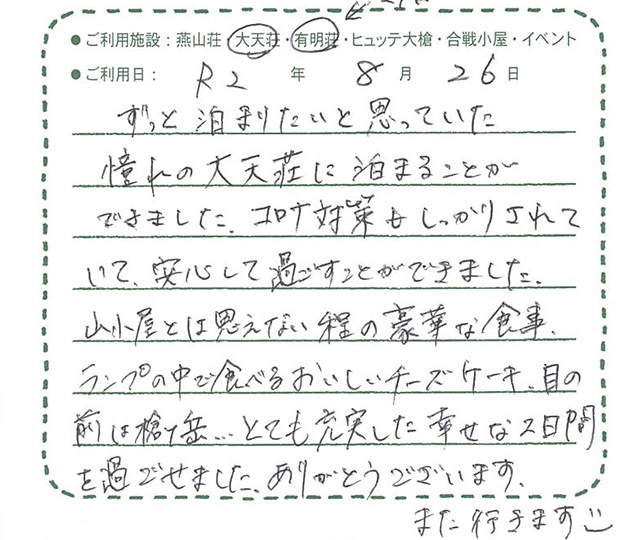 ●ご利用施設：燕山荘・大天荘・有明荘・ヒュッテ大槍・合戦小屋・イベント
●ご利用日： R2 年 8 月 26 日
ずっと泊まりたいと思っていた
憧れの大天荘に泊まることが
できました。コロナ対策もしっかりされて
いて、安心して過ごすことができました。
山小屋とは思えない程の豪華な食事、
ランプの中で食べるおいしいチーズケーキ、目の
前は槍ヶ岳…とても充実した幸せな2日間
を過ごせました。ありがとうございます。
また行きます